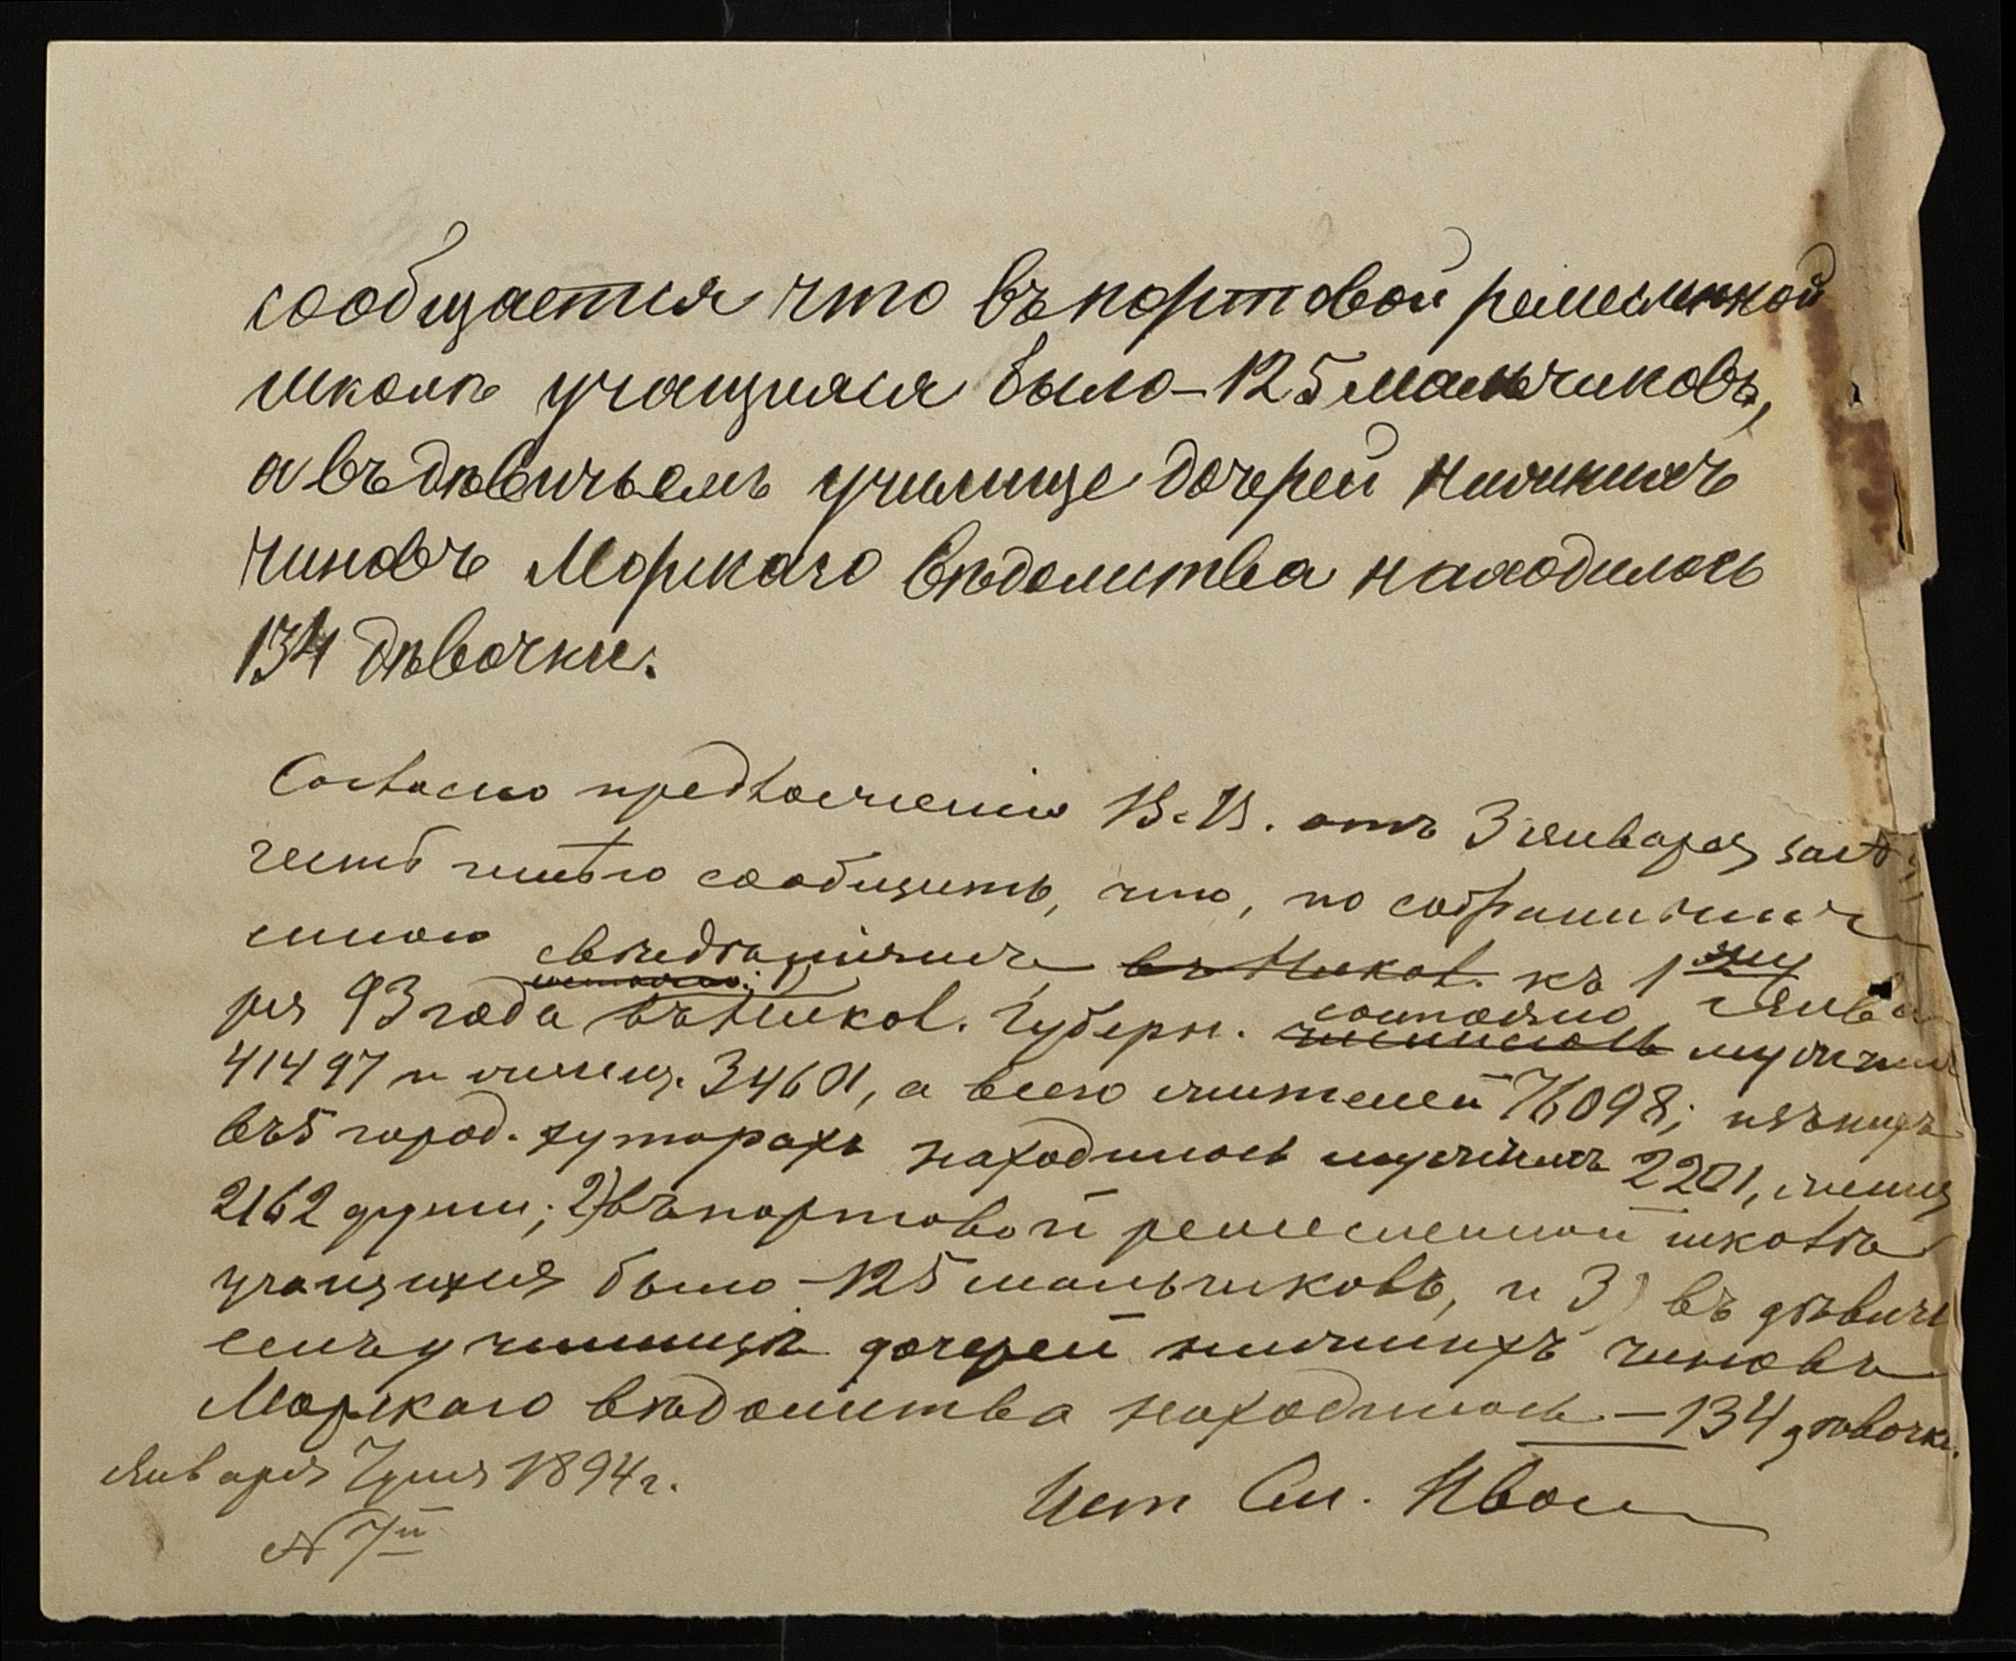 сообщается что въ портовой ремеслнной
школѣ учащихся было – 125 мальчиковъ,
а въ дѣвичьемъ училище дочерей нижнихъ
чиновъ Морскаго вѣдомства находилось
134 дѣвочки.
Согласно предложенію В. В. отъ 3 января за №
честь имѣю сообщить, что, по собраннымъ
мною свѣдѣніямъ, въ Никол. къ 1му Янва
ря 93 года въ Никол. Губерн. состояло мужчинъ
41497 и женщ. 34601, а всего жителей 76098; изъ нихъ
въ 5 город. хуторахъ находилось мужчинъ 2201, женщ
2162 души; 2) въ портовой ремесленной школѣ
учащихся было – 125 мальчиковъ, и 3) въ дѣвичь
емъ училищѣ дочерей нижнихъ чиновъ
Морскаго вѣдомства находилось – 134 дѣвочки.
Января 7 дня 1894 г.
№ 7й